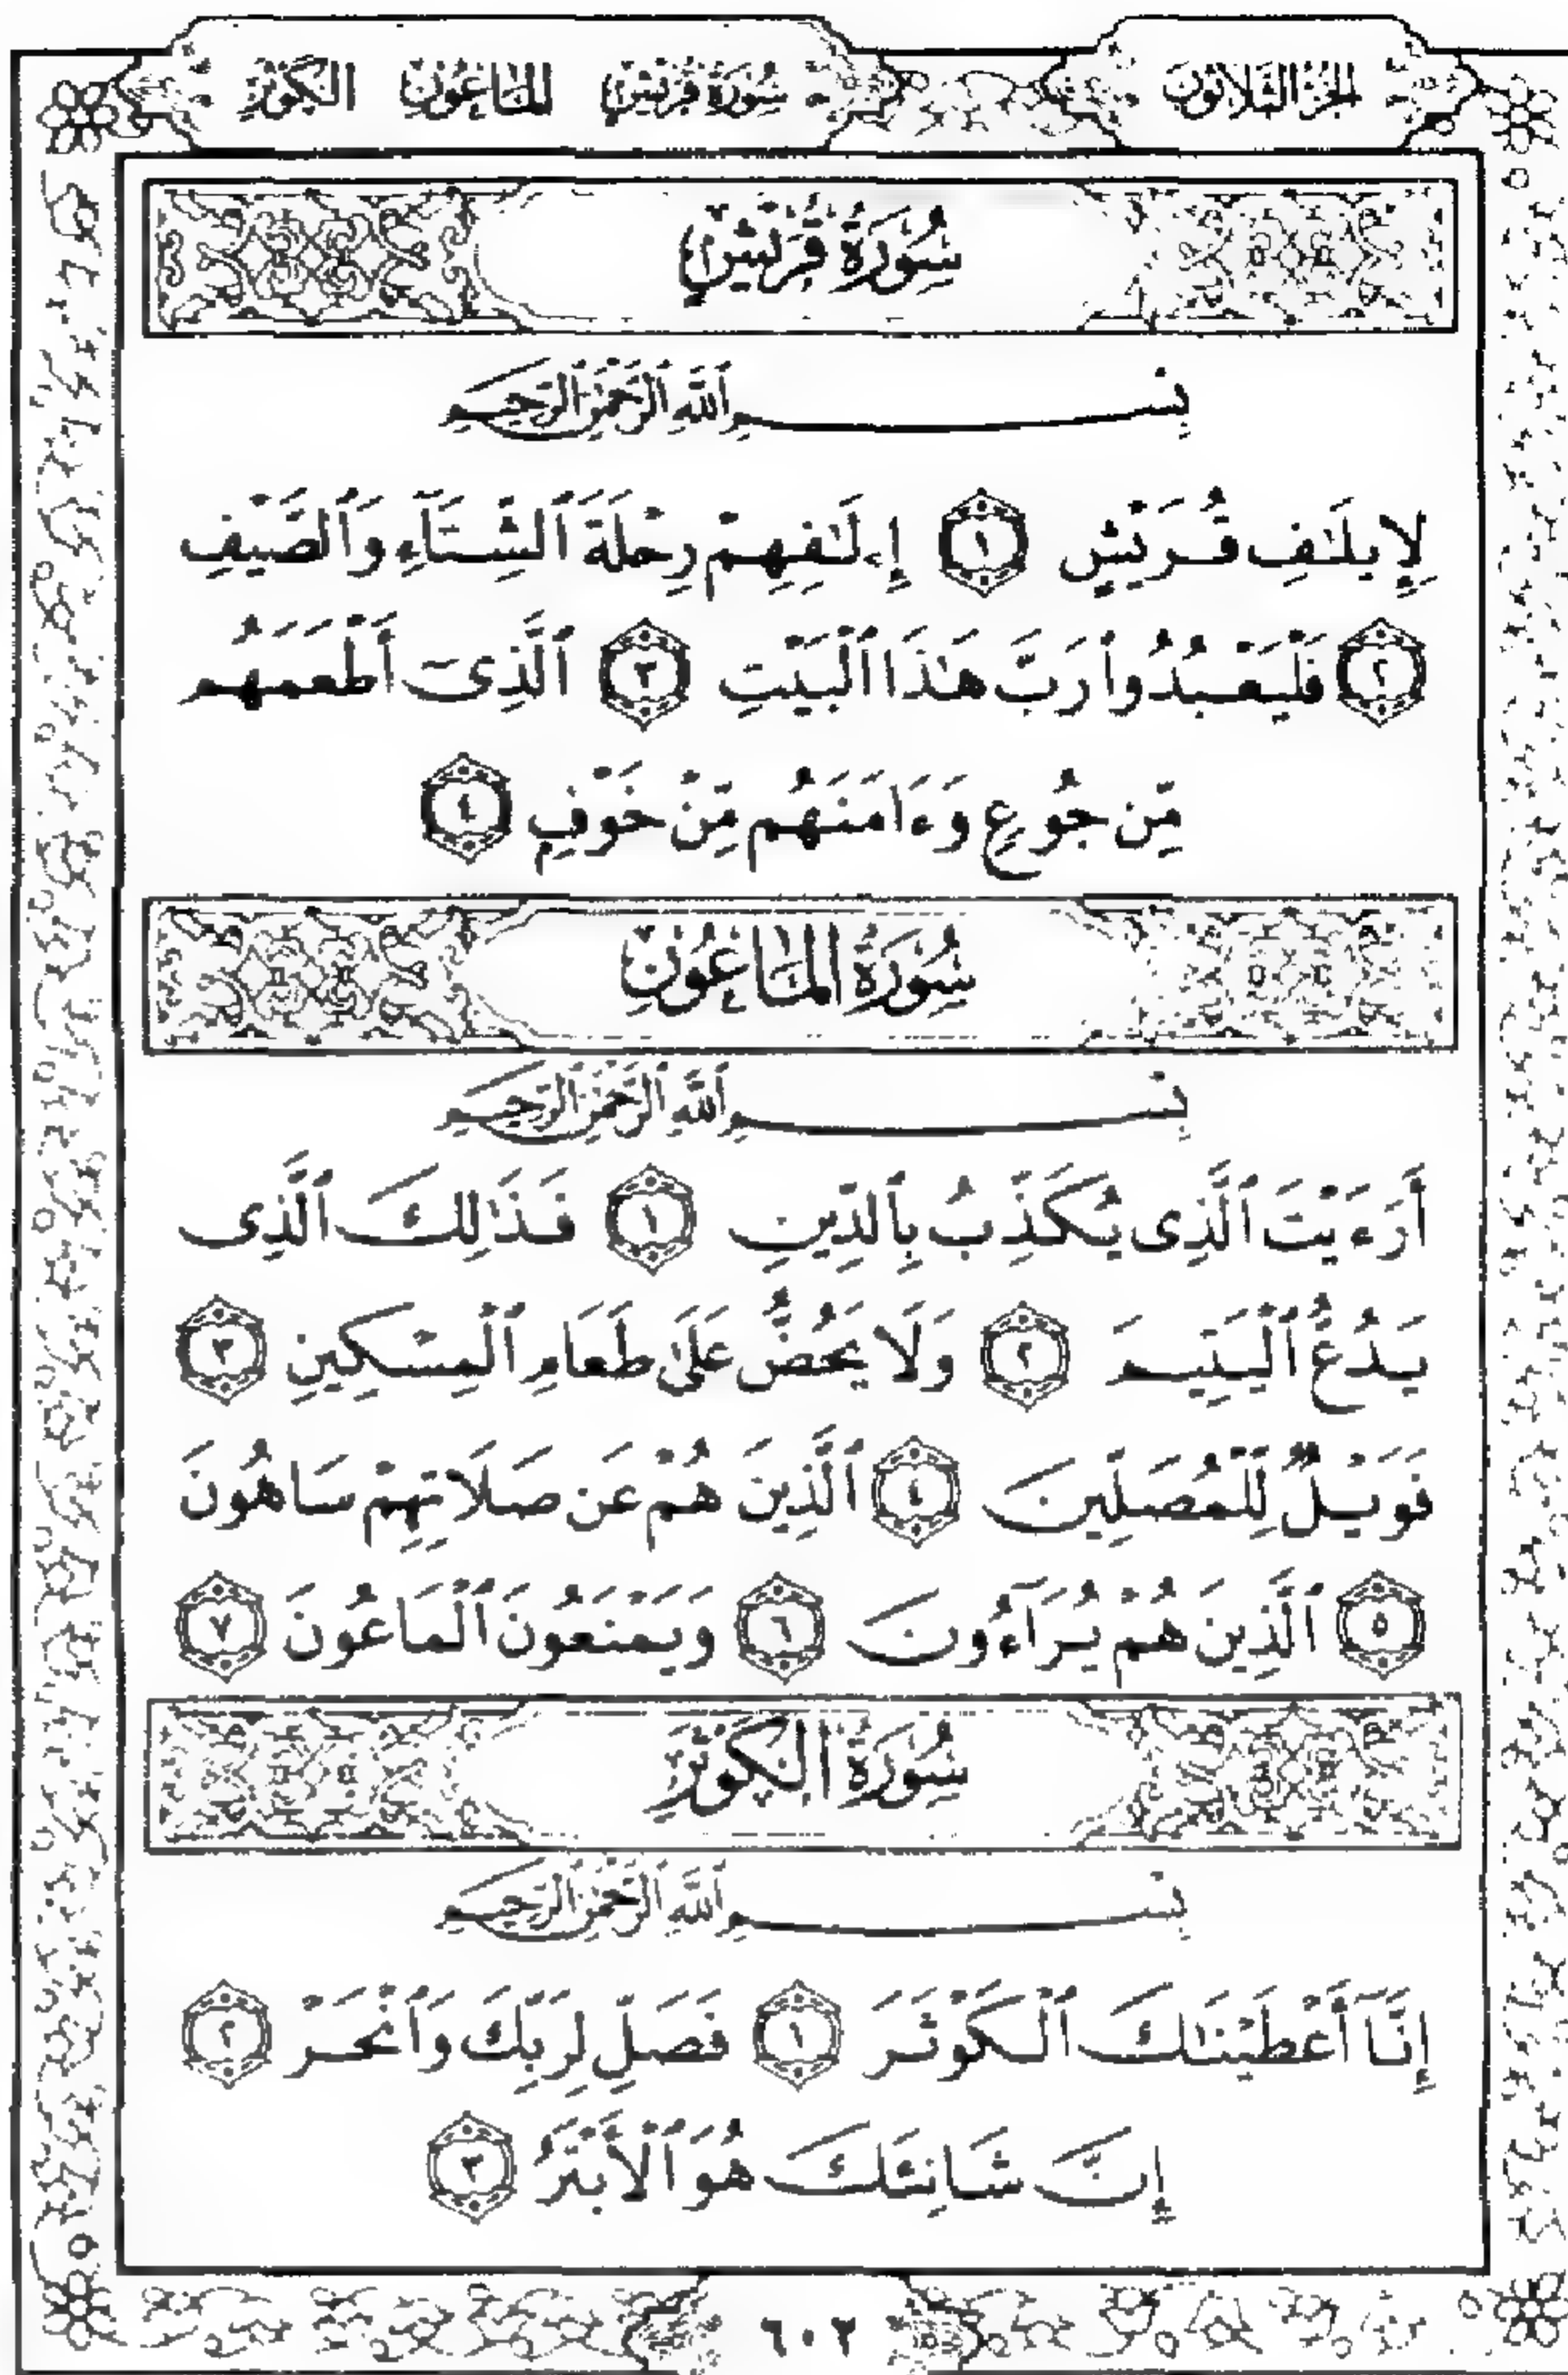 الجزء الثلاثون
سورة قريش الماعون الكوثر
سُورَةُ قُرَيْشٍ
بِسْمِ ٱللَّهِ ٱلرَّحْمَٰنِ ٱلرَّحِيمِ
لِإِيلَٰفِ قُرَيْشٍ ١ إِۦلَٰفِهِمْ رِحْلَةَ ٱلشِّتَآءِ وَٱلصَّيْفِ
٢ فَلْيَعْبُدُوا۟ رَبَّ هَٰذَا ٱلْبَيْتِ ٣ ٱلَّذِىٓ أَطْعَمَهُم
مِّن جُوعٍ وَءَامَنَهُم مِّنْ خَوْفٍۭ ٤
سُورَةُ المَاعُونِ
بِسْمِ ٱللَّهِ ٱلرَّحْمَٰنِ ٱلرَّحِيمِ
أَرَءَيْتَ ٱلَّذِى يُكَذِّبُ بِٱلدِّينِ ١ فَذَٰلِكَ ٱلَّذِى
يَدُعُّ ٱلْيَتِيمَ ٢ وَلَا يَحُضُّ عَلَىٰ طَعَامِ ٱلْمِسْكِينِ ٣
فَوَيْلٌ لِّلْمُصَلِّينَ ٤ ٱلَّذِينَ هُمْ عَن صَلَاتِهِمْ سَاهُونَ
٥ ٱلَّذِينَ هُمْ يُرَآءُونَ ٦ وَيَمْنَعُونَ ٱلْمَاعُونَ ٧
سُورَةُ الكَوْثَرِ
بِسْمِ ٱللَّهِ ٱلرَّحْمَٰنِ ٱلرَّحِيمِ
إِنَّآ أَعْطَيْنَٰكَ ٱلْكَوْثَرَ ١ فَصَلِّ لِرَبِّكَ وَٱنْحَرْ ٢
إِنَّ شَانِئَكَ هُوَ ٱلْأَبْتَرُ ٣
٦٠٢